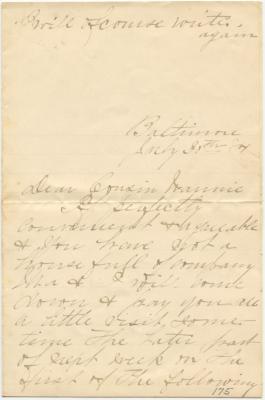 I will of course write
again
Baltimore
July
Dear Cousin Nannie
If perfectly
convenient & agreeable
& you have not a
house full of company
& I will come
down & pay you all
a little visit, some
time the later part
of next week or the
first of the following
175